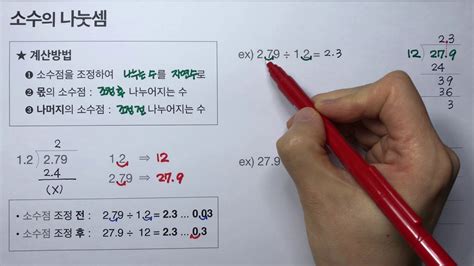 소수의 나눗셈
★ 계산방법
① 소수점을 조정하여 나누는 수를 자연수로
② 몫의 소수점 : 조정 후 나누어지는 수
③ 나머지의 소수점 : 조정 전 나누어지는 수
2
1.2 ) 2.79
2.4
(x)
1.2 ⇒ 12
2.79 ⇒ 27.9
• 소수점 조정 전 : 2.79 ÷ 1.2 = 2.3 ... 0.03
• 소수점 조정 후 : 27.9 ÷ 12 = 2.3 ... 0.3
ex) 2.79 ÷ 1.2 = 2.3
2.3
12 ) 27.9
24
39
36
3
ex) 27.9